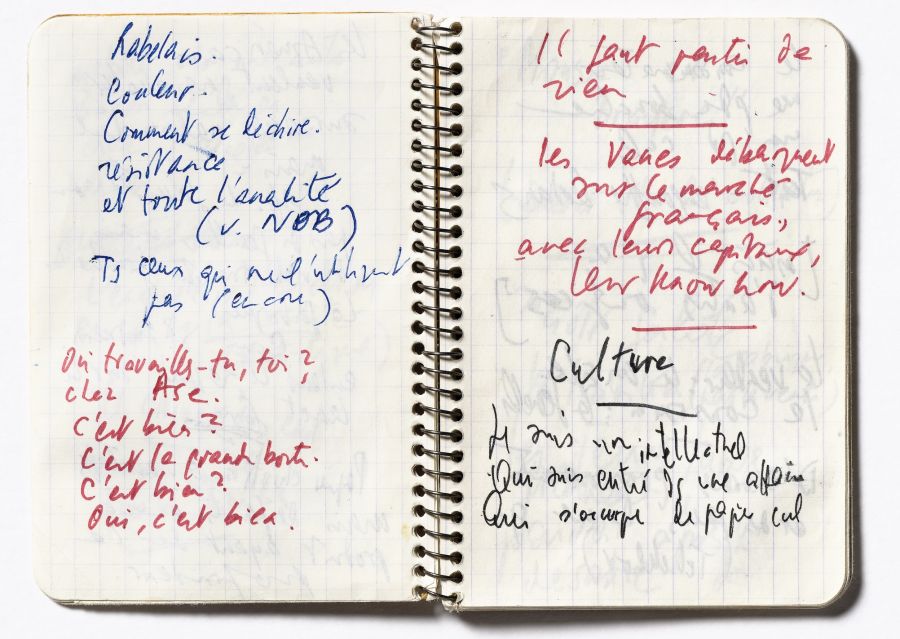 Rabelais.
Couleur.
Comment se déchire.
résistance
et toute l'analité
(v. NOB)
Ts ceux qui ne l'utilisent
pas (encore)
Où travailles-tu, toi?
chez Ase.
C'est bien?
C'est la grande boîte.
C'est bien?
Oui, c'est bien.
Il faut partir de
rien
les Vanes débarquent
sur le marché
français,
avec leurs capitaux,
leur know how.
Culture
Je suis un intellectuel
Qui suis entré ds une affaire
Qui s'occupe de papier cul